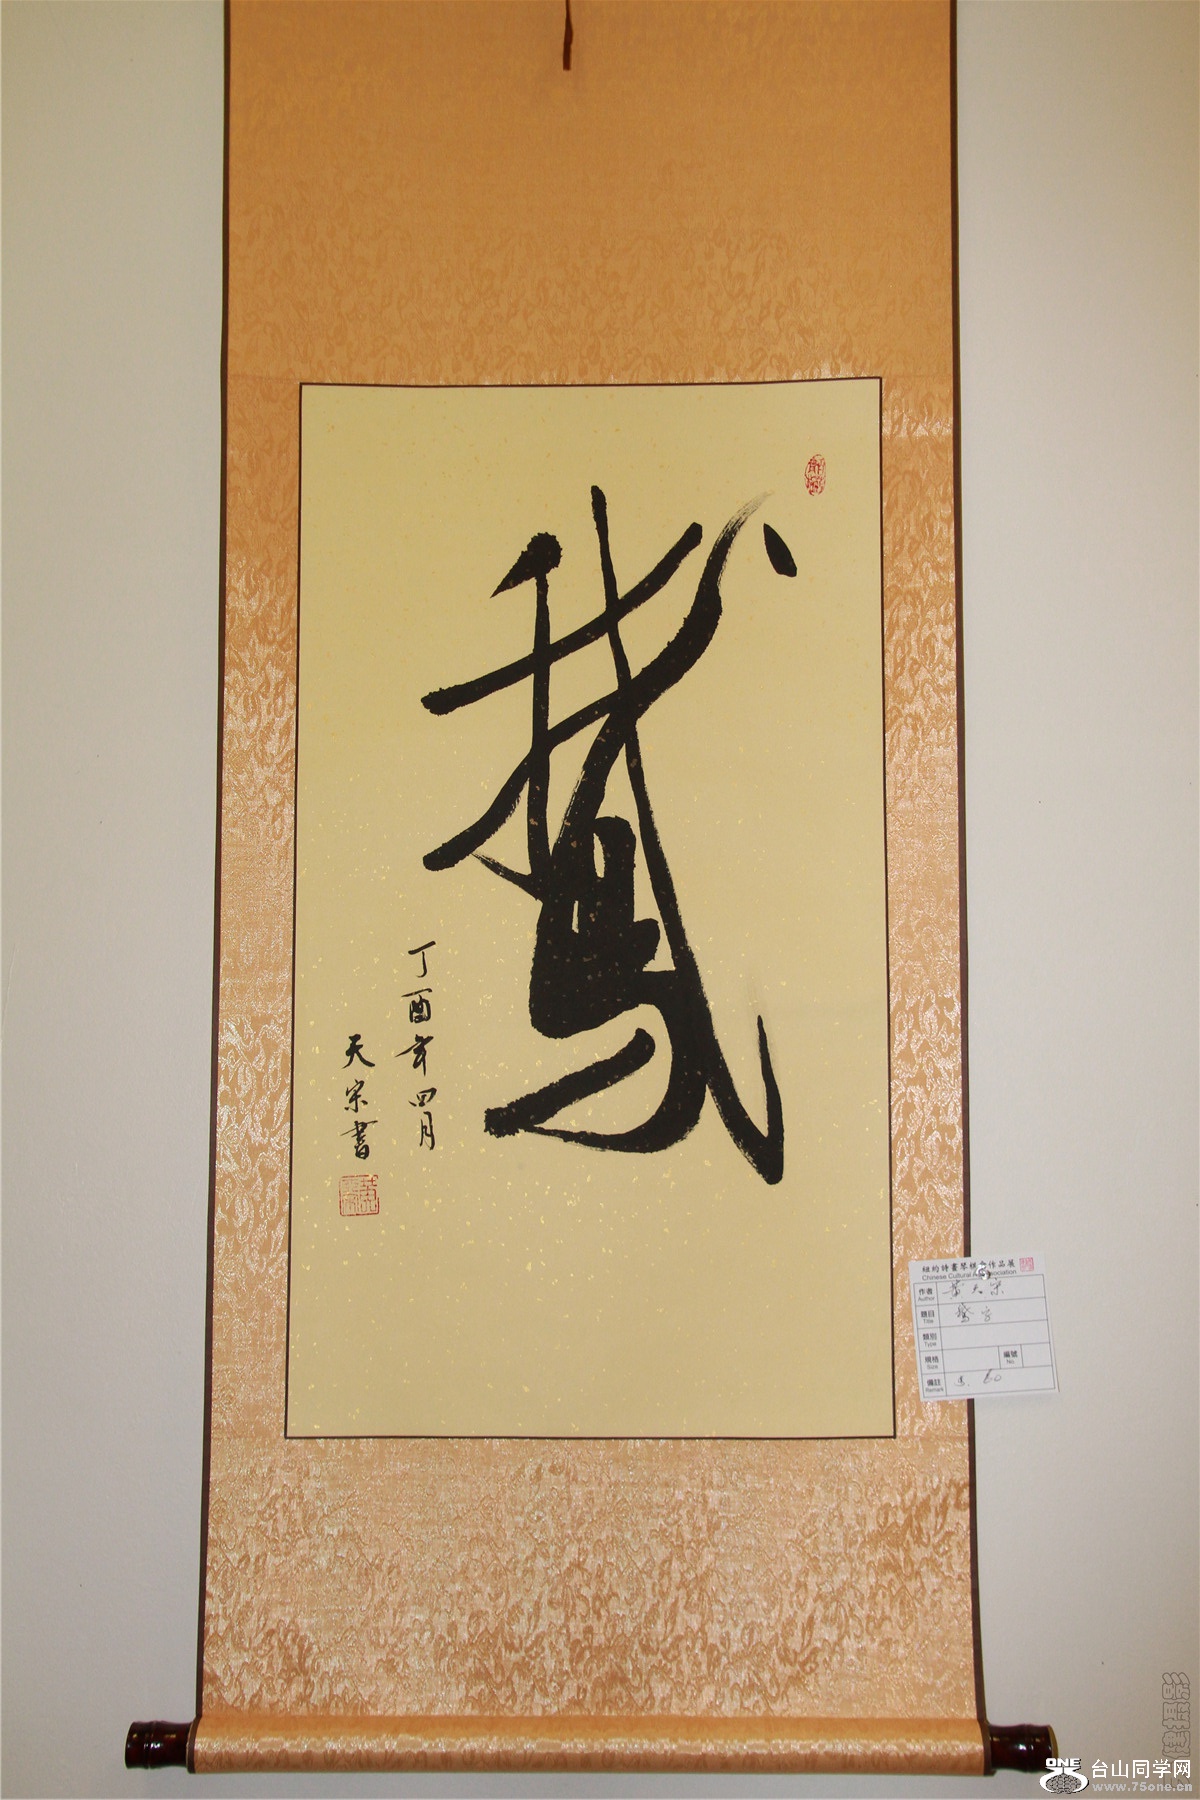 鵞
丁酉年四月
天宗書
紐約詩畫琴棋會作品展
Chinese Cultural Association
作者 黃天宗
Author
題目
Title
類別
Type
規格
Size
編號
No.
備註
Remark
ONE
台山同学网
www.75one.cn